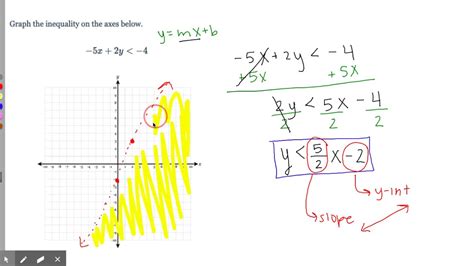 Graph the inequality on the axes below.
y=mx+b
-5x + 2y < -4
-5x+2y < -4
+5x +5x
2y < 5x - 4
2 2 2
y < 5/2 x - 2
y-int
slope